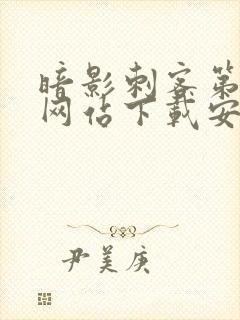 暗影刺客第
网站下载安
尹美庚